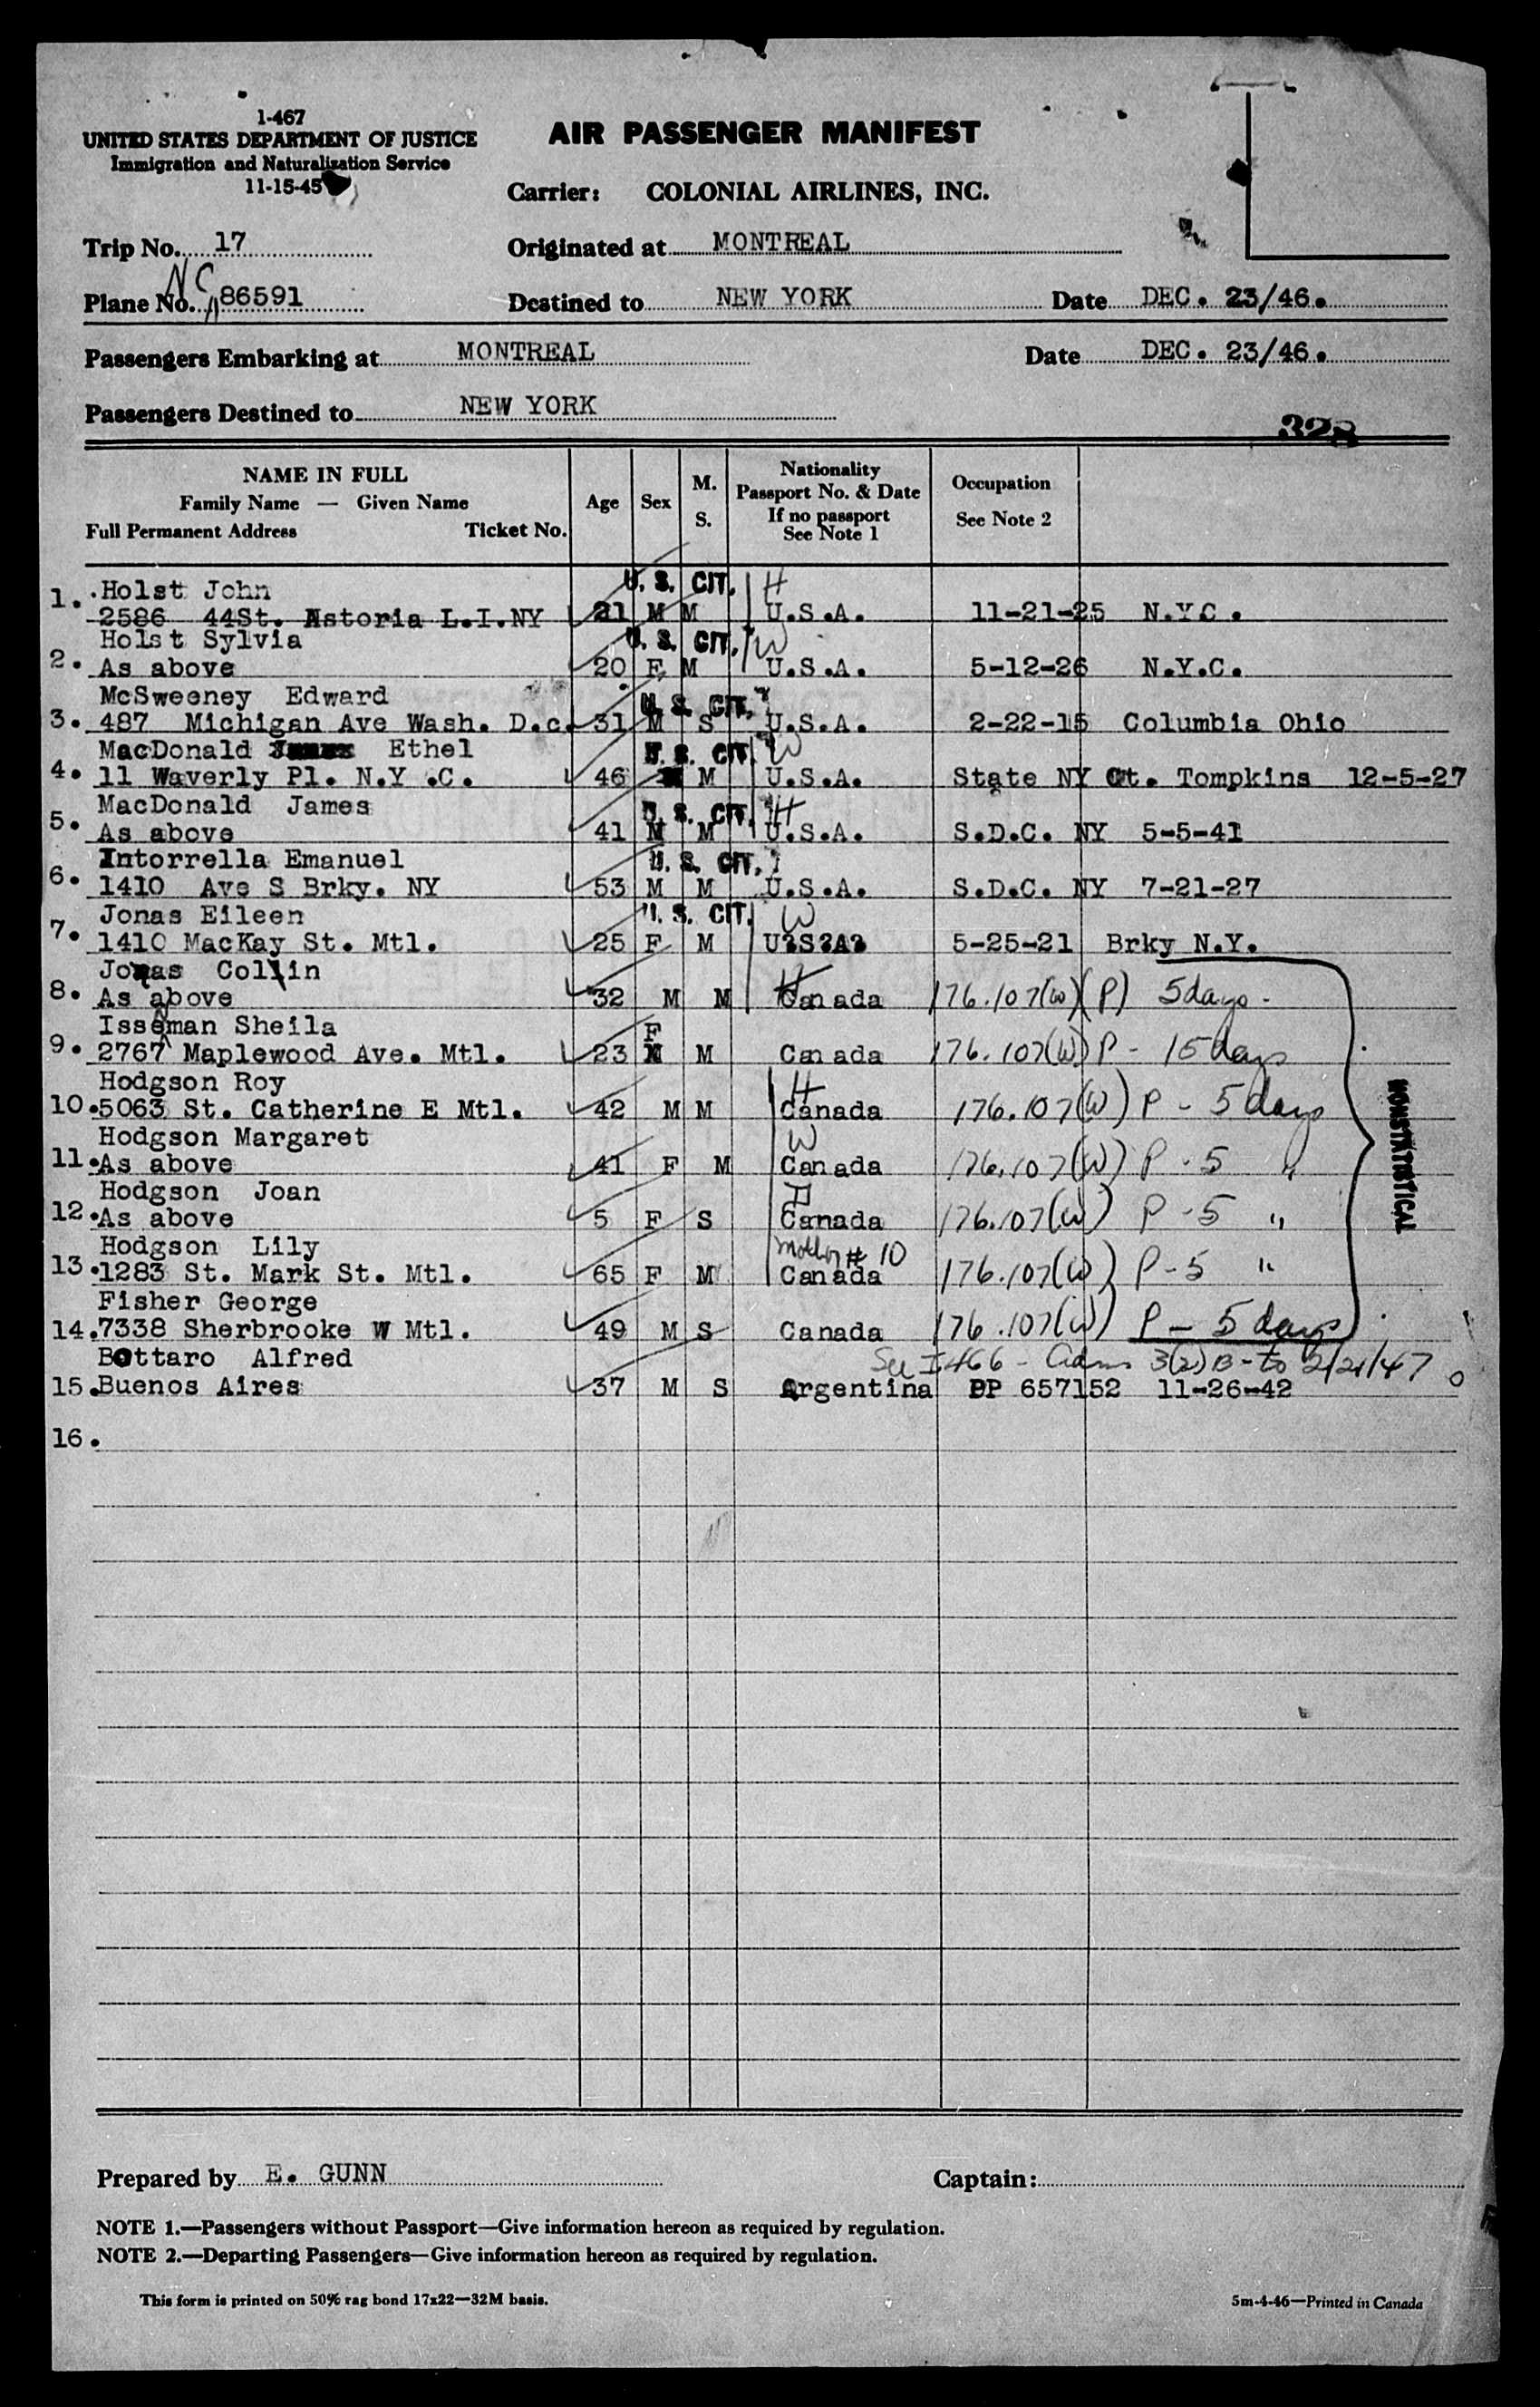 1-467
UNITED STATES DEPARTMENT OF JUSTICE
Immigration and Naturalization Service
11-15-45
AIR PASSENGER MANIFEST
Carrier: COLONIAL AIRLINES, INC.
Trip No. 17
Originated at MONTREAL
Plane No. NC 86591
Destined to NEW YORK Date DEC. 23/46.
Passengers Embarking at MONTREAL Date DEC. 23/46.
Passengers Destined to NEW YORK
328
NAME IN FULL
Family Name — Given Name
Full Permanent Address Ticket No.
Age
Sex
M.
S.
Nationality
Passport No. & Date
If no passport
See Note 1
Occupation
See Note 2
Holst John U. S. CIT. H
1. 2586 44St. Astoria L.I.NY 21 M M U.S.A. 11-21-25 N.Y.C.
Holst Sylvia U. S. CIT. W
2. As above 20 F M U.S.A. 5-12-26 N.Y.C.
McSweeney Edward U. S. CIT.
3. 487 Michigan Ave Wash. D.c. 31 M S U.S.A. 2-22-15 Columbia Ohio
MacDonald Ethel U. S. CIT. W
4. 11 Waverly Pl. N.Y .C. 46 M U.S.A. State NY Ct. Tompkins 12-5-27
MacDonald James U. S. CIT. H
5. As above 41 M M U.S.A. S.D.C. NY 5-5-41
Intorrella Emanuel U. S. CIT.
6. 1410 Ave S Brky. NY 53 M M U.S.A. S.D.C. NY 7-21-27
Jonas Eileen U. S. CIT. W
7. 1410 MacKay St. Mtl. 25 F M U?S?A? 5-25-21 Brky N.Y.
Jonas Collin H
8. As above 32 M M Canada 176.107(W)(P) 5 days -
Isseman Sheila F
9. 2767 Maplewood Ave. Mtl. 23 M M Canada 176.107(W) P - 15 days
Hodgson Roy H
10. 5063 St. Catherine E Mtl. 42 M M Canada 176.107(W) P - 5 days
Hodgson Margaret W
11. As above 41 F M Canada 176.107(W) P - 5 "
Hodgson Joan D
12. As above 5 F S Canada 176.107(W) P - 5 "
Hodgson Lily Mother # 10
13. 1283 St. Mark St. Mtl. 65 F M Canada 176.107(W) P - 5 "
Fisher George
14. 7338 Sherbrooke W Mtl. 49 M S Canada 176.107(W) P - 5 days
NONSTATISTICAL
Bottaro Alfred See I 466 - Adm 3(2)B - to 2/21/47
15. Buenos Aires 37 M S Argentina PP 657152 11-26-42
16.
Prepared by E. GUNN
Captain:
NOTE 1.—Passengers without Passport—Give information hereon as required by regulation.
NOTE 2.—Departing Passengers—Give information hereon as required by regulation.
This form is printed on 50% rag bond 17x22—32M basis.
5m-4-46—Printed in Canada